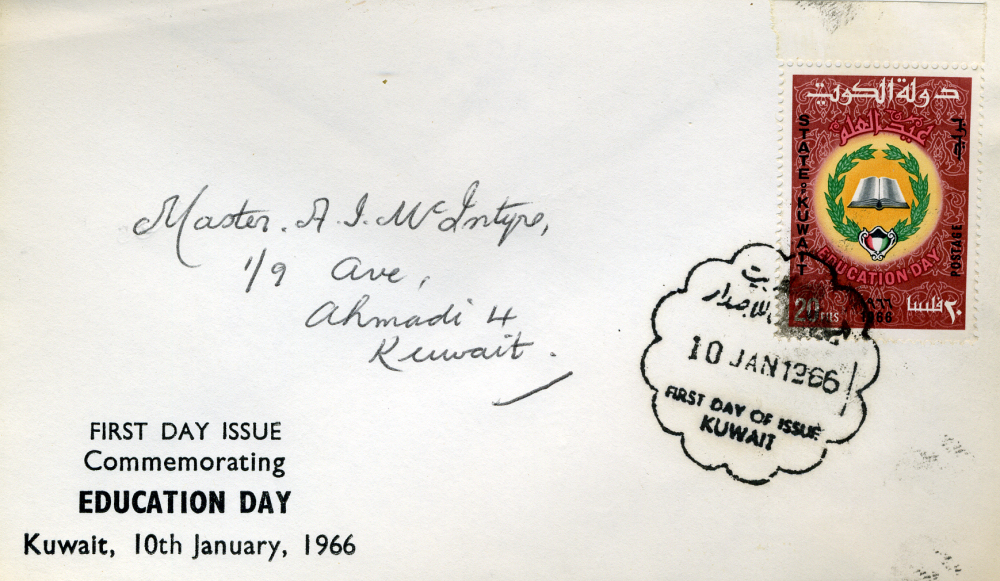 دولة الكويت
عيد العلم
بريد
STATE OF KUWAIT
EDUCATION DAY
POSTAGE
20 FILS
١٩٦٦
1966
٢٠ فلسا
Master. A. I. McIntyre,
1/9 Ave,
Ahmadi 4
Kuwait.
10 JAN 1966
FIRST DAY OF ISSUE
KUWAIT
FIRST DAY ISSUE
Commemorating
EDUCATION DAY
Kuwait, 10th January, 1966